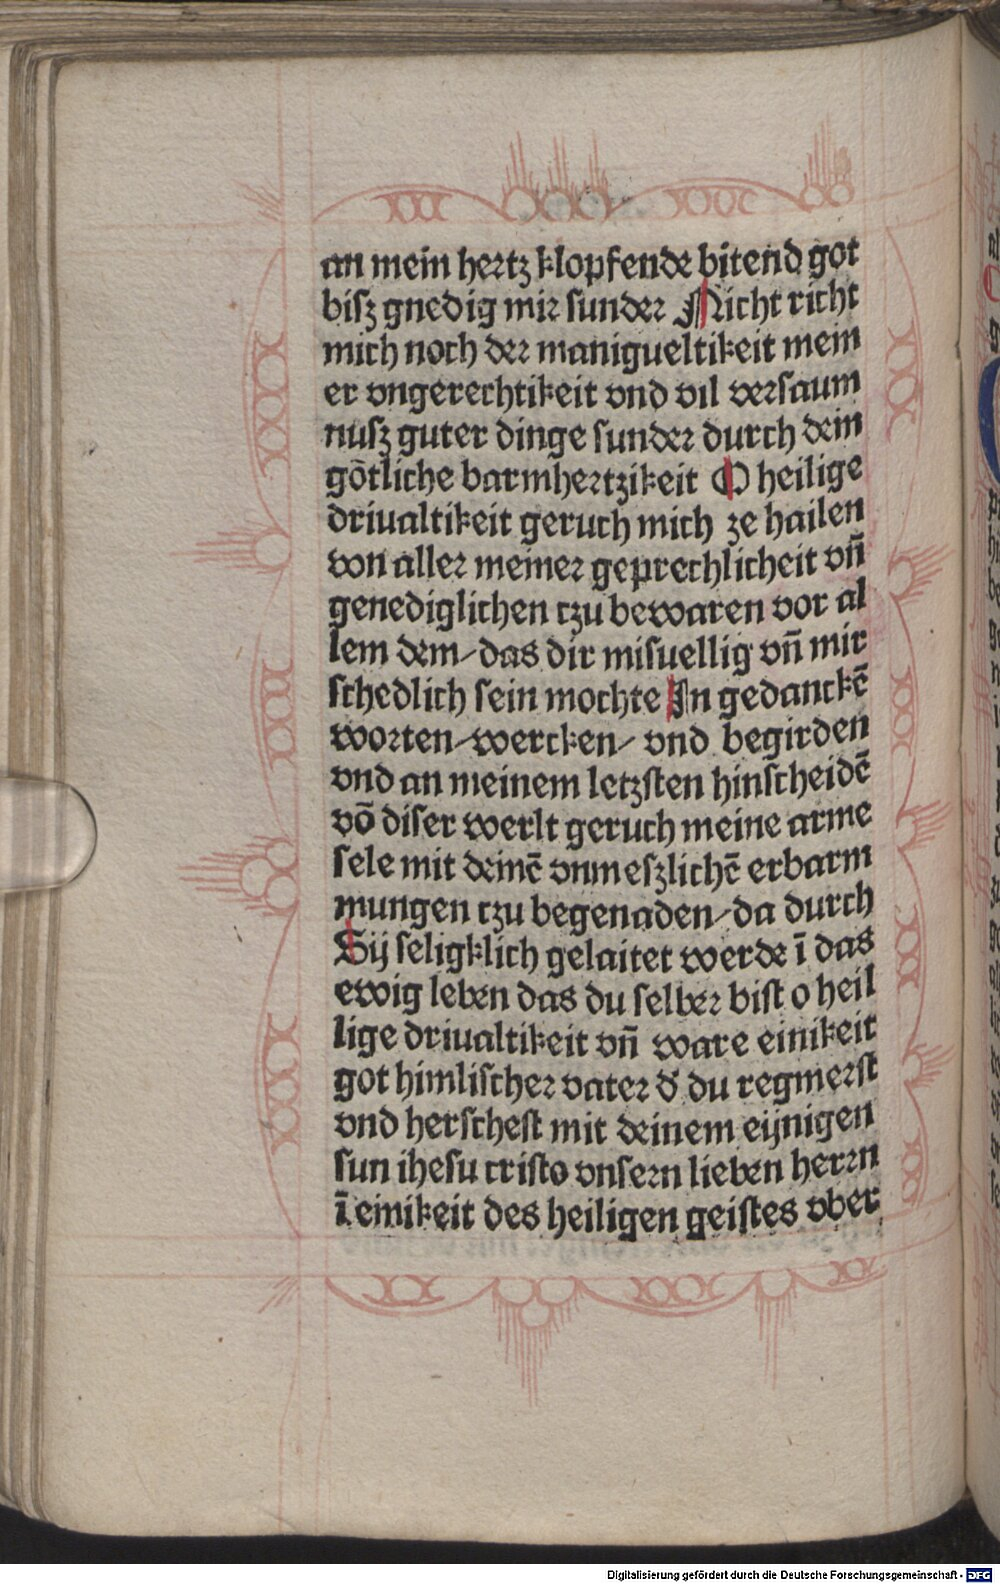 an mein hertz klopfende bitend got
bisz gnedig mir sunder Nicht richt
mich noch der manigueltikeit mein
er vngerechtikeit vnd vil versaum
nusz guter dinge sunder durch dein
gōtliche barmhertzikeit O heilige
driualtikeit geruch mich ze hailen
von aller meiner geprechlicheit vñ
genediglichen czu bewaren vor al
lem dem/das dir misuellig vñ mir
schedlich sein mochte In gedanckē
worten/wercken/ vnd begirden
vnd an meinem letzsten hinscheidē
vō diser werlt geruch meine arme
sele mit deinē vnmeszlichē erbarm
mungen czu begenaden/da durch
Sij seligklich gelaitet werde ī das
ewig leben das du selber bist o heil
lige driualtikeit vñ ware einikeit
got himlischer vater d᷑ du regnierst
vnd herschest mit deinem eijnigen
sun ihesu cristo vnsern lieben herrn
ī einikeit des heiligen geistes vber
Digitalisierung gefördert durch die Deutsche Forschungsgemeinschaft - DFG